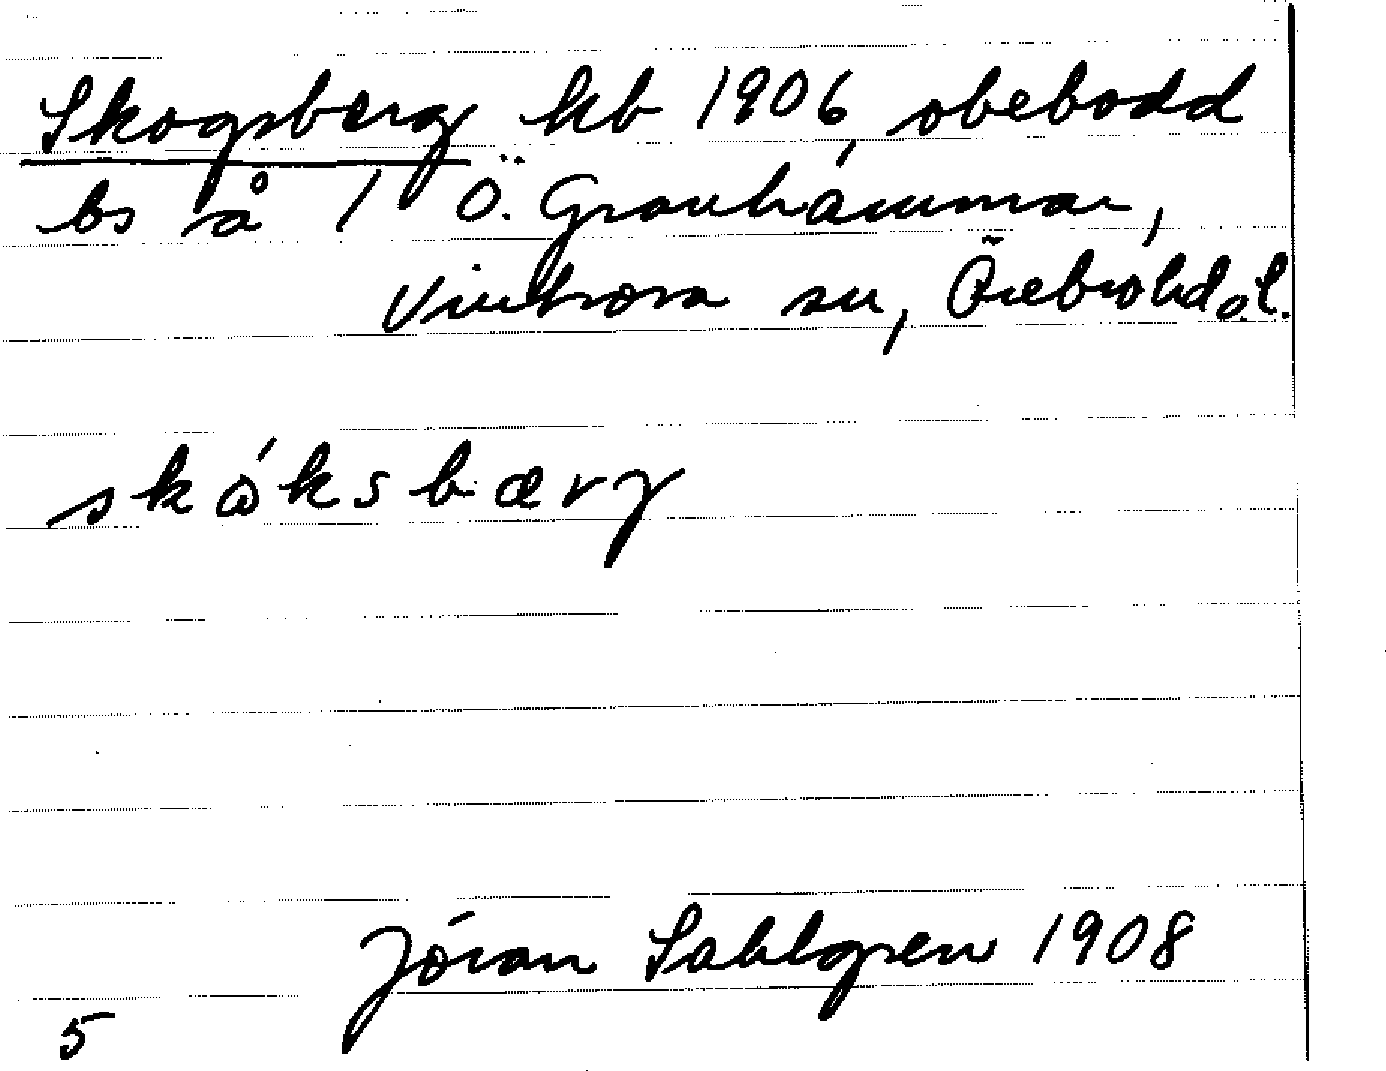 Skogsberg kb 1906, obebodd
bs å 1 Ö. Gronhammar,
Vintrosa sn, Örebro hd o.l.
skåksbærγ
Jöran Sahlgren 1908
5